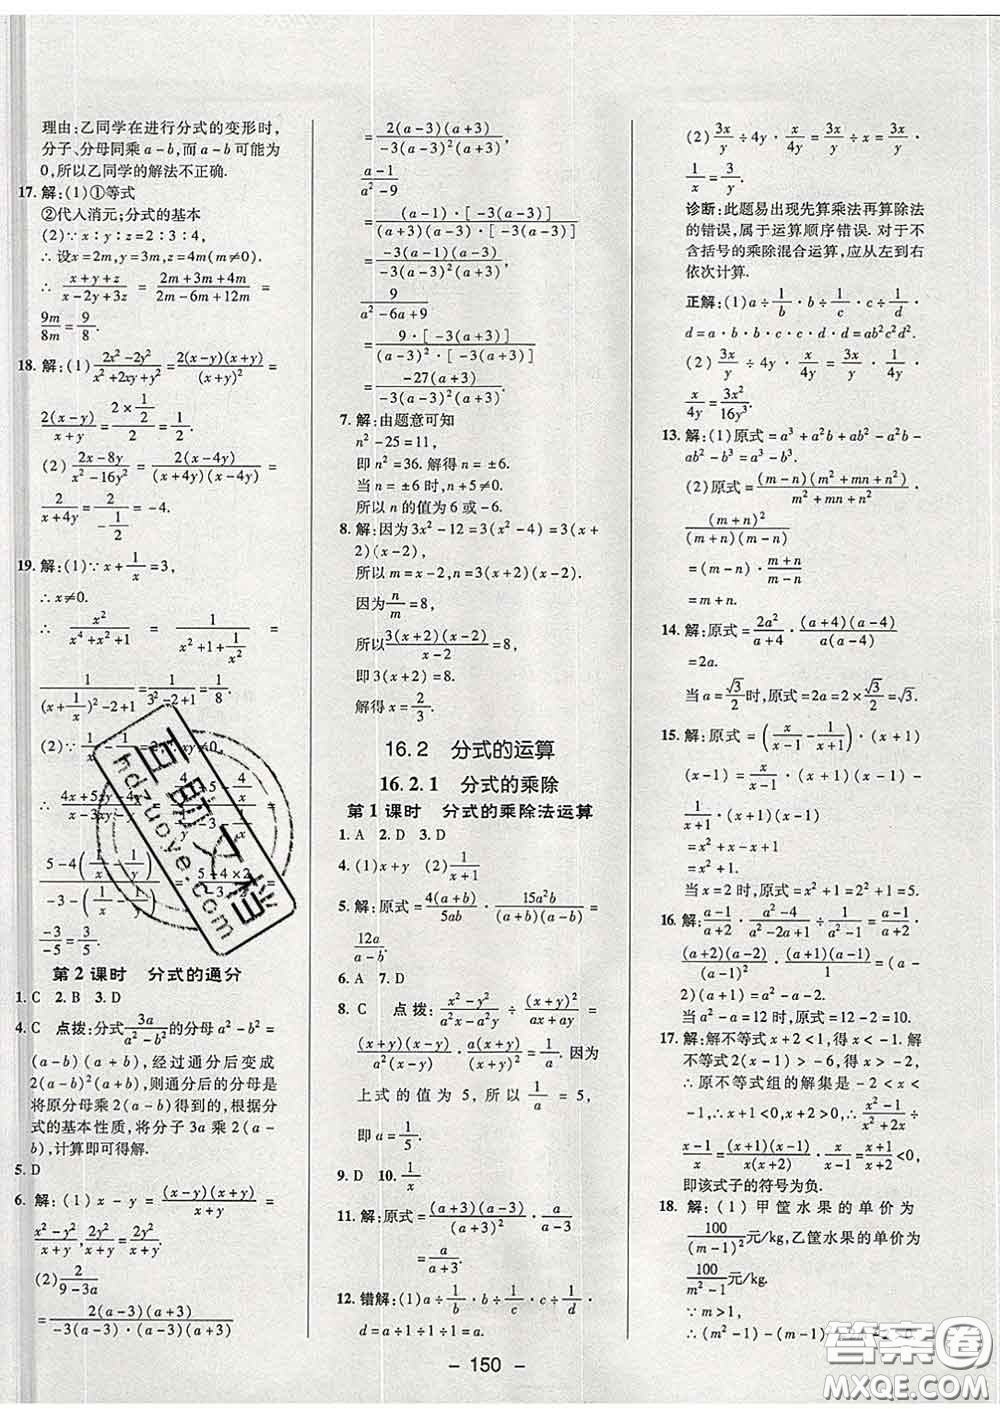 理由:乙同学在进行分式的变形时,
分子、分母同乘 a-b,而 a-b 可能为
0,所以乙同学的解法不正确.
17. 解:(1)①等式
②代人消元;分式的基本
(2)∵x∶y∶z=2∶3∶4,
∴设x=2m,y=3m,z=4m(m≠0).
∴ (x+y+z)/(x-2y+3z) = (2m+3m+4m)/(2m-6m+12m) =
9m/8m = 9/8.
18. 解:(1) (2x²-2y²)/(x²+2xy+y²) = 2(x-y)(x+y)/(x+y)² =
2(x-y)/(x+y) = (2×1/2)/2 = 1/2.
(2) (2x-8y)/(x²-16y²) = 2(x-4y)/((x+4y)(x-4y)) =
2/(x+4y) = 2/(-1/2) = -4.
19. 解:(1)∵x+1/x=3,
∴x≠0.
∴ x²/(x⁴+x²+1) = 1/(x²+1+1/x²) =
1/((x+1/x)²-2+1) = 1/(3²-2+1) = 1/8.
-3/-5 = 3/5.
第 2 课时 分式的通分
1. C 2. B 3. D
4. C 点拨:分式 3a/(a²-b²) 的分母 a²-b²=
(a-b)(a+b),经过通分后变成
2(a-b)²(a+b),则通分后的分母是
将原分母乘 2(a-b)得到的,根据分
式的基本性质,将分子 3a 乘 2(a-
b),计算即可得解.
5. D
6. 解:(1) x-y = (x-y)(x+y)/(x+y) =
(x²-y²)/(x+y), 2y²/(x+y) = 2y²/(x+y).
(2) 2/(9-3a)
= 2(a-3)(a+3)/(-3(a-3)·(a-3)(a+3))
= 2(a-3)(a+3)/(-3(a-3)²(a+3)),
(a-1)/(a²-9)
= (a-1)·[-3(a-3)]/((a+3)(a-3)·[-3(a-3)])
= -3(a-1)(a-3)/(-3(a-3)²(a+3)),
9/(a²-6a+9)
= 9·[-3(a+3)]/((a-3)²·[-3(a+3)])
= -27(a+3)/(-3(a-3)²(a+3)).
7. 解:由题意可知
n²-25=11,
即 n²=36. 解得 n=±6.
当 n=±6 时,n+5≠0.
所以 n 的值为 6 或-6.
8. 解:因为 3x²-12=3(x²-4)=3(x+
2)(x-2),
所以 m=x-2,n=3(x+2).
因为 n/m=8,
所以 3(x+2)(x-2)/(x-2)=8,
即 3(x+2)=8.
解得 x=2/3.
16.2 分式的运算
16.2.1 分式的乘除
第 1 课时 分式的乘除法运算
1. A 2. D 3. D
4. (1)x+y (2)1/(x+1)
5. 解:原式= 4(a+b)/5ab · 15a²b/((a+b)(a-b)) =
12a/(a-b).
6. A 7. D
8. C 点拨: (x²-y²)/(a²x-a²y) ÷ (x+y)²/(ax+ay) =
(x+y)(x-y)/(a²(x-y)) · a(x+y)/(x+y)² = 1/a. 因为
上式的值为 5, 所以 1/a = 5,
即 a=1/5.
9. D 10. 1/x
11. 解:原式= (a+3)(a-3)/(a+3)² · a/(a-3)
= a/(a+3).
12. 错解:(1)a÷1/b·b÷1/c·c÷1/d·
d=a÷1÷1÷1=a.
(2) 3x/y÷4y·x/4y = 3x/y÷x =
1/x = 3/y.
诊断:此题易出现先算乘法再算除法
的错误,属于运算顺序错误. 对于不
含括号的乘除混合运算,应从左到右
依次计算.
正解:(1)a÷1/b·b÷1/c·c÷1/d·
d=a·b·b·c·c·d·d=ab²c²d².
(2) 3x/y÷4y·x/4y = 3x/y·1/4y·
x/4y = 3x²/16y³.
13. 解:(1)原式=a³+a²b+ab²-a²b-
ab²-b³=a³-b³.
(2)原式= (m-n)(m²+mn+n²)/(m²+mn+n²)
· (m+n)²/((m+n)(m-n))
=(m-n)·(m+n)/(m-n)
=m+n.
14. 解:原式= 2a²/(a+4) · (a+4)(a-4)/(a(a-4))
=2a.
当 a=√3/2 时,原式=2a=2×√3/2=√3.
15. 解:原式=(x/(x-1) - x/(x+1))
(x²+x)(x-1)
当 x=2 时,原式=2²+1=5.
16. (a-1)/(a+2) · (a²-4)/(a²-2a+1) ÷ 1/(a²-1) = (a-1)/(a+2)
· (a+2)(a-2)/(a-1)² · (a+1)(a-1)/1 = (a-
2)(a+1)=a²-a-2.
当 a²-a=12 时,原式=12-2=10.
17. 解:解不等式 x+2<1,得 x<-1. 解
不等式 2(x-1)>-6,得 x>-2.
∴原不等式组的解集是 -2<x<
-1,∴x+1<0,x+2>0,∴ (x²-1)/(x²+2x) ÷
(x-1)/x = (x+1)(x-1)/(x(x+2)) · x/(x-1) = (x+1)/(x+2) <0,
即该式子的符号为负.
18. 解: (1) 甲筐水果的单价为
100/(m-1)² 元/kg,乙筐水果的单价为
100/(m²-1) 元/kg.
∵m>1,
- 150 -
百助文档
hdzuoye.com
答案圈
MXQE.COM